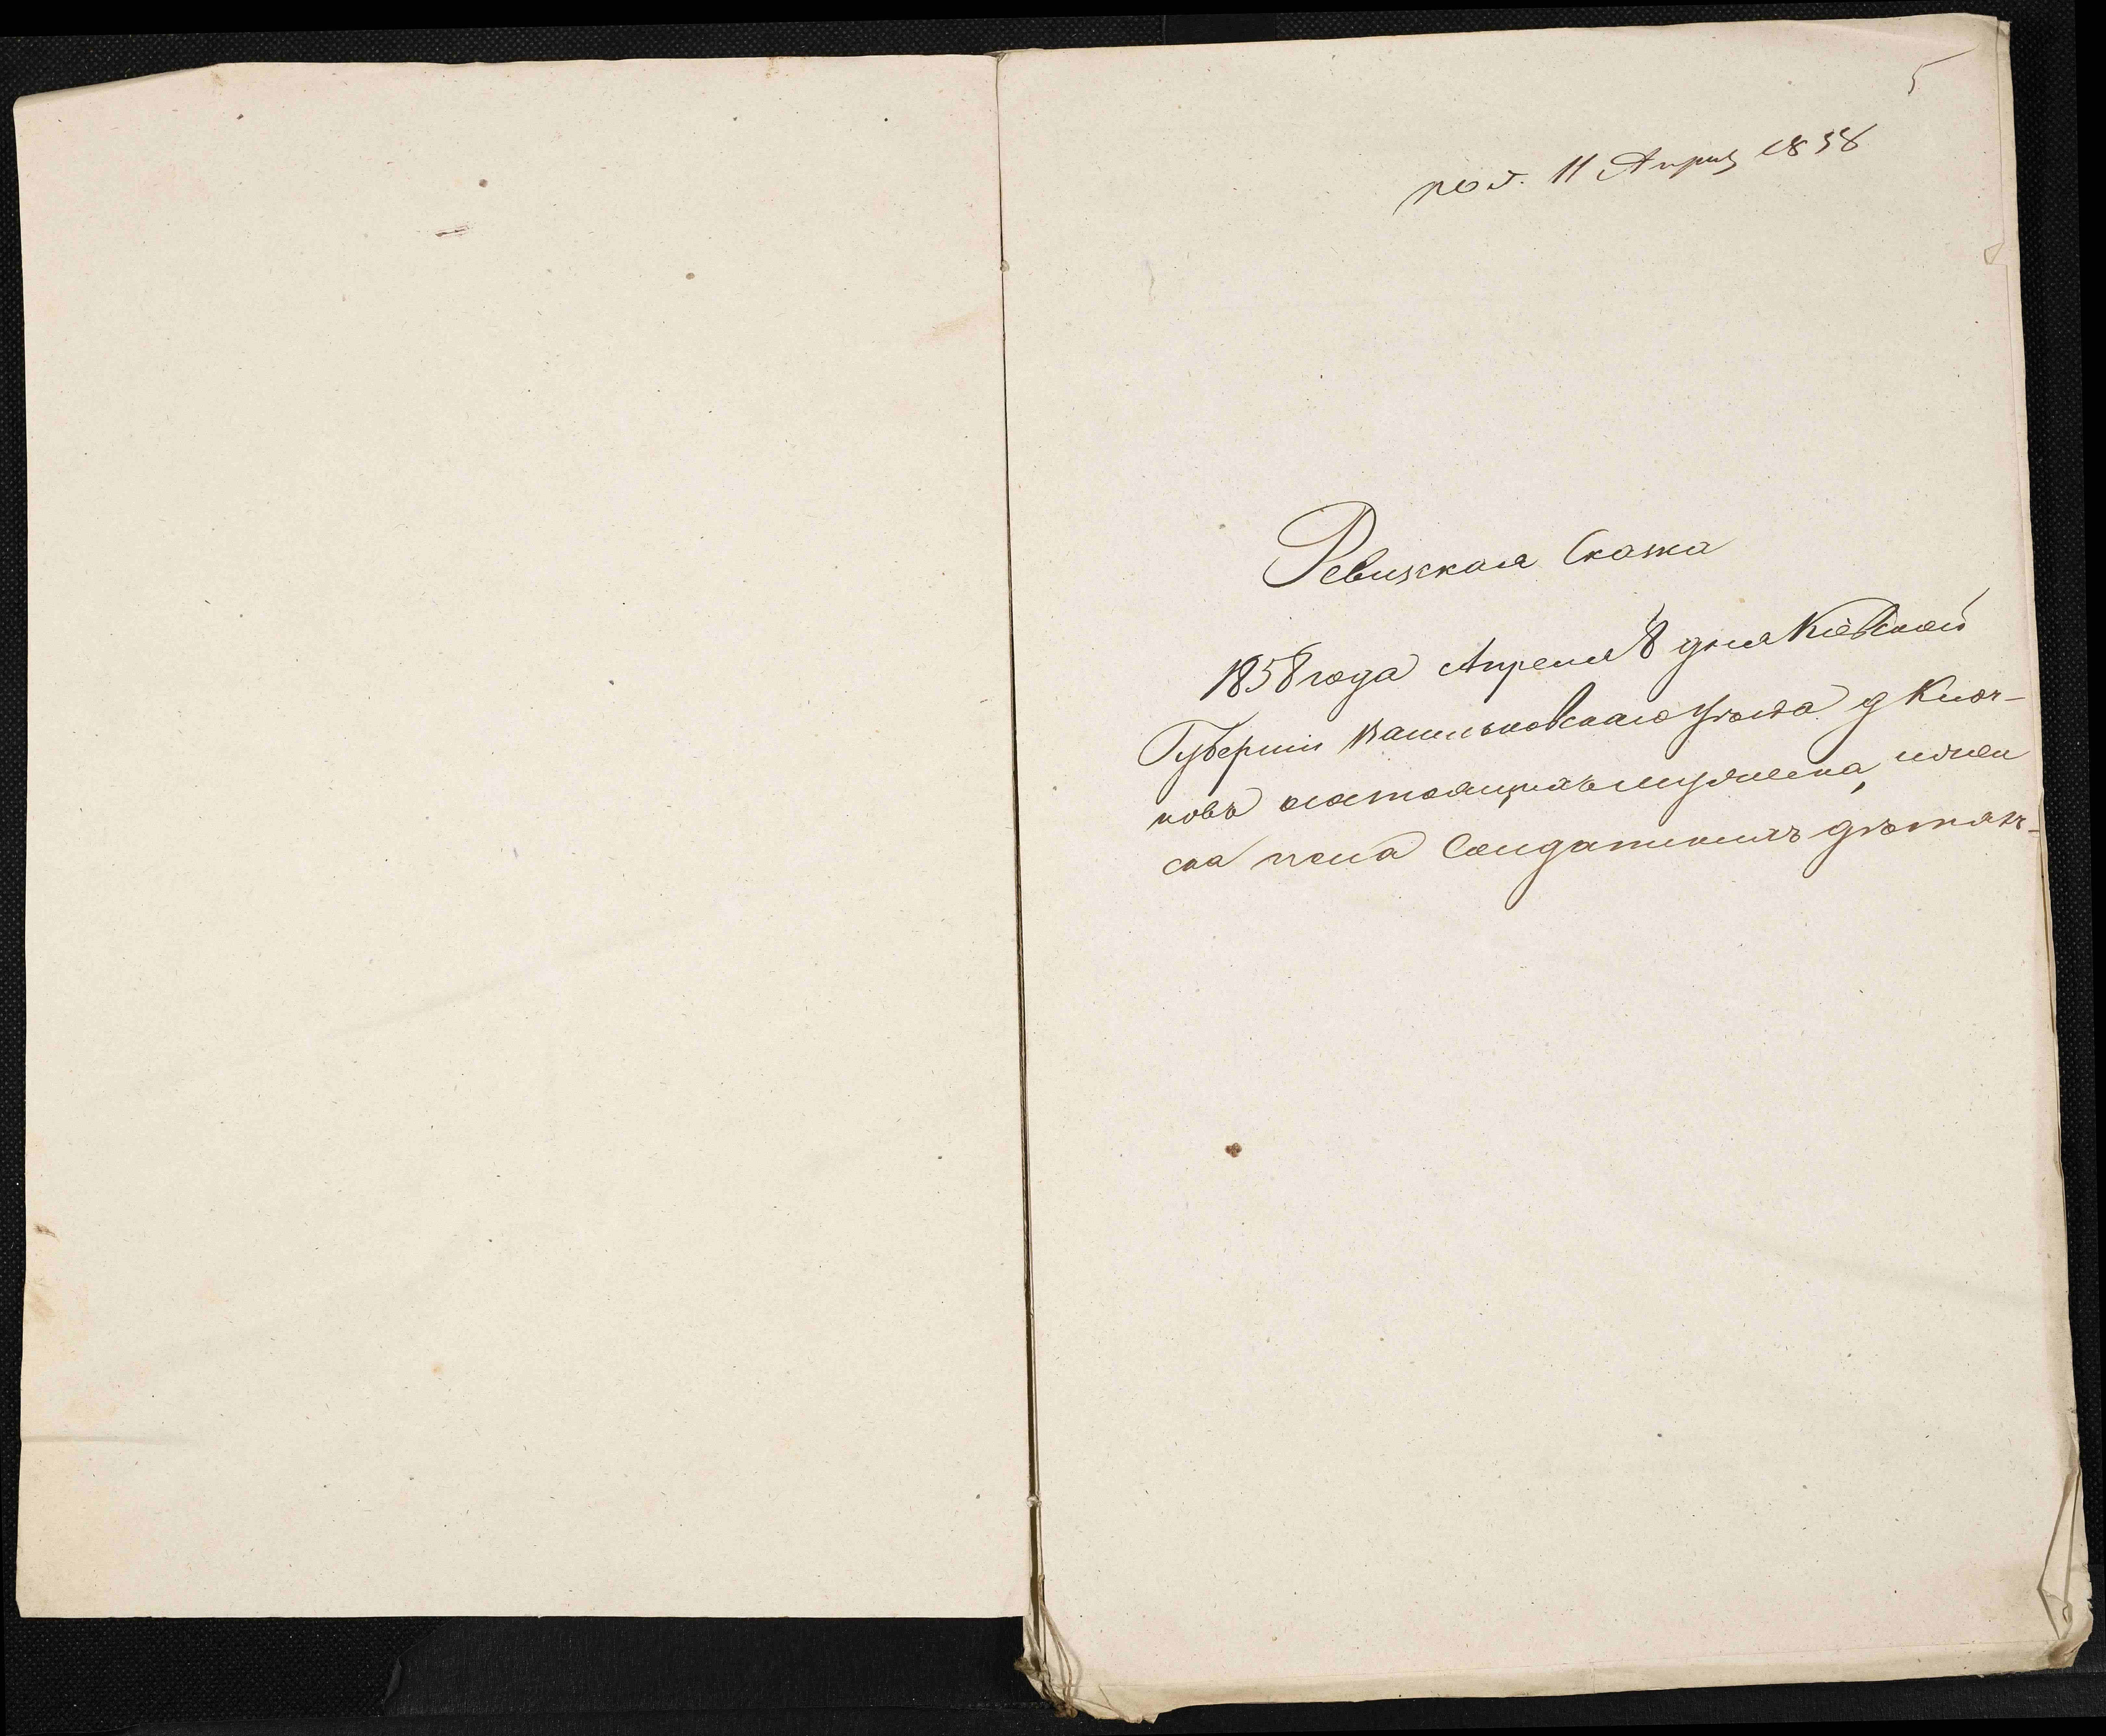 5
пол. 11 Април 1858
Ревизская Скаска
1858 года Апреля 8 дня Кіевской
Губерніи Васильковскаго уѣзда д Клоч-
ковъ состоящихъ мужеска, жен
ска пола Солдатскихъ дѣтяхъ-